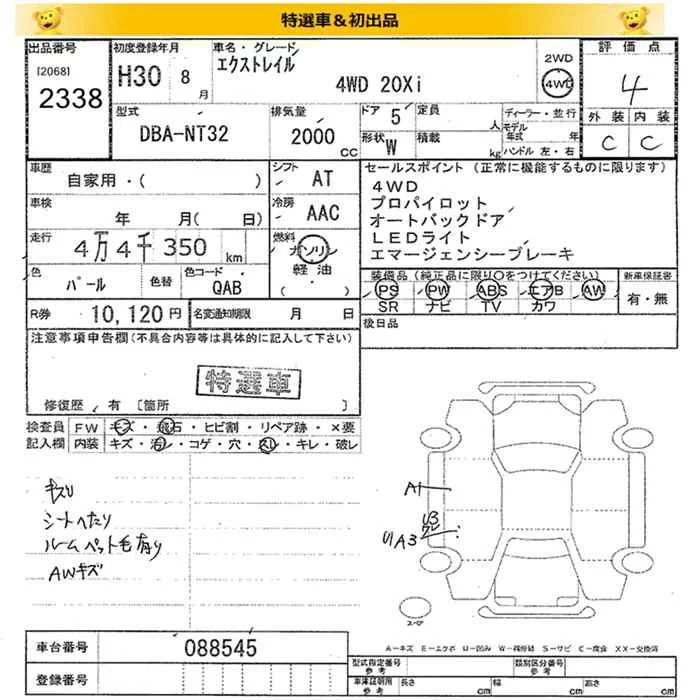 特選車＆初出品
出品番号
[2068]
2338
初度登録年月
H30 8月
車名・グレード
エクストレイル
4WD 20Xi
2WD
4WD
評価点
4
外装 内装
C C
型式
DBA-NT32
排気量
2000 CC
ドア 5
定員 人
形状 W
積載 kg
ディーラー・並行
モデル年式 年
ハンドル 左・右
車歴
自家用・( )
シフト
AT
車検
年 月( 日)
冷房
AAC
走行
4万4千350km
燃料
ガソリン
軽油
・( )
色
パール
色替
色コード
QAB
セールスポイント(正常に機能するものに限ります)
4WD
プロパイロット
オートバックドア
LEDライト
エマージェンシーブレーキ
装備品(純正品に限り○をつけてください)
PS PW ABS エアB AW
SR ナビ TV カワ
新車保証書
有・無
R券 10,120円
名変通知期限 月 日
後日品
注意事項申告欄(不具合内容等は具体的に記入して下さい)
特選車
修復歴 有 [箇所 ]
検査員記入欄
FW キズ・飛石・ヒビ割・リペア跡・×要
内装 キズ・汚レ・コゲ・穴・スレ・キレ・破レ
キズU
シートへたり
ルームペット毛有り
AWキズ
A1
U3
U1A3
スペア
A－キズ E－エクボ U－凹み W－補修跡 S－サビ C－腐食 XX－交換済
車台番号
088545
登録番号
型式指定番号参考
類別区分番号参考
車庫証明用参考
長さ cm
幅 cm
高さ cm